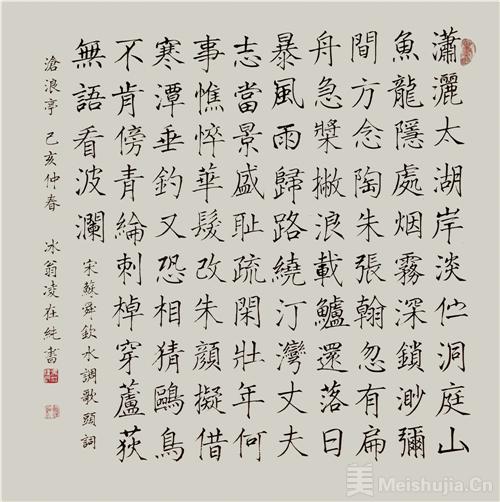 瀟灑太湖岸淡伫洞庭山
魚龍隱處烟霧深鎖渺彌
間方念陶朱張翰忽有扁
舟急槳撇浪載鱸還落日
暴風雨歸路繞汀灣丈夫
志當景盛耻疏閑壯年何
事憔悴華髮改朱顏擬借
寒潭垂釣又恐相猜鷗鳥
不肯傍青綸刺棹穿蘆荻
無語看波瀾
宋蘇舜欽水調歌頭詞
滄浪亭 己亥仲春 冰翁凌在純書
美 Meishujia.Cn